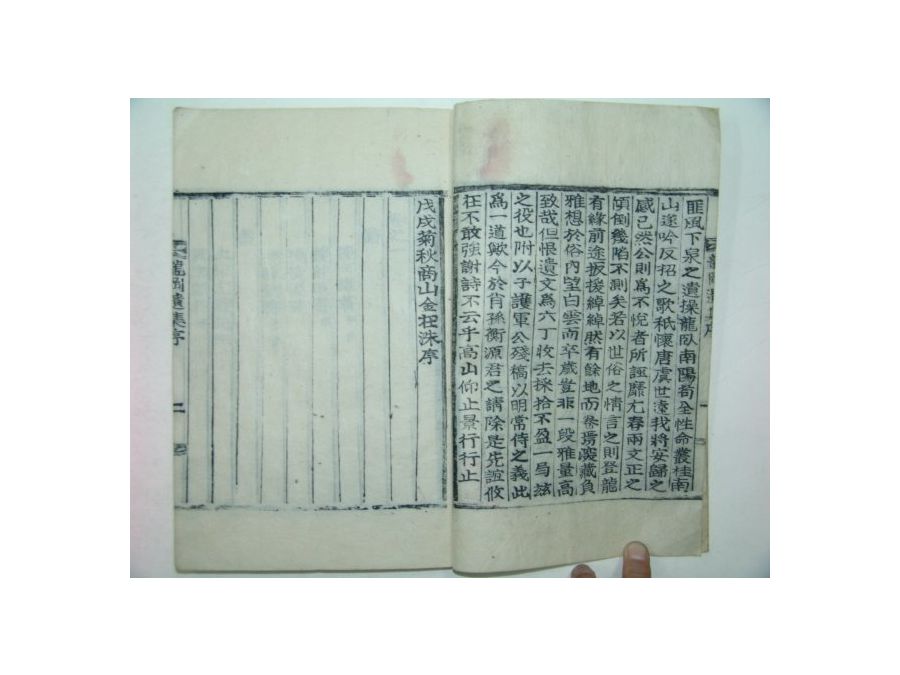 匪風下泉之遺操龍臥南陽苟全性命叢桂南
山遂吟反招之歌秖懷唐虞世遠我將安歸之
感已然公則爲不悅者所誣靡尤春兩文正之
傾倒幾陷不測矣若以世俗之情言之則登龍
有緣前途扳援綽綽然有餘地而卷藏負
雅想於俗內望白雲而卒歲豈非一段雅量高
致哉但恨遺文爲六丁收去採拾不盈一局玆
之役也附以子護軍公殘稿以明常侍之義此
爲一道歟今於肖孫衡源君之請除是先誼攸
在不敢強謝詩不云乎高山仰止景行行止
戊戌菊秋商山金在洙序
龍岡遺集序
二